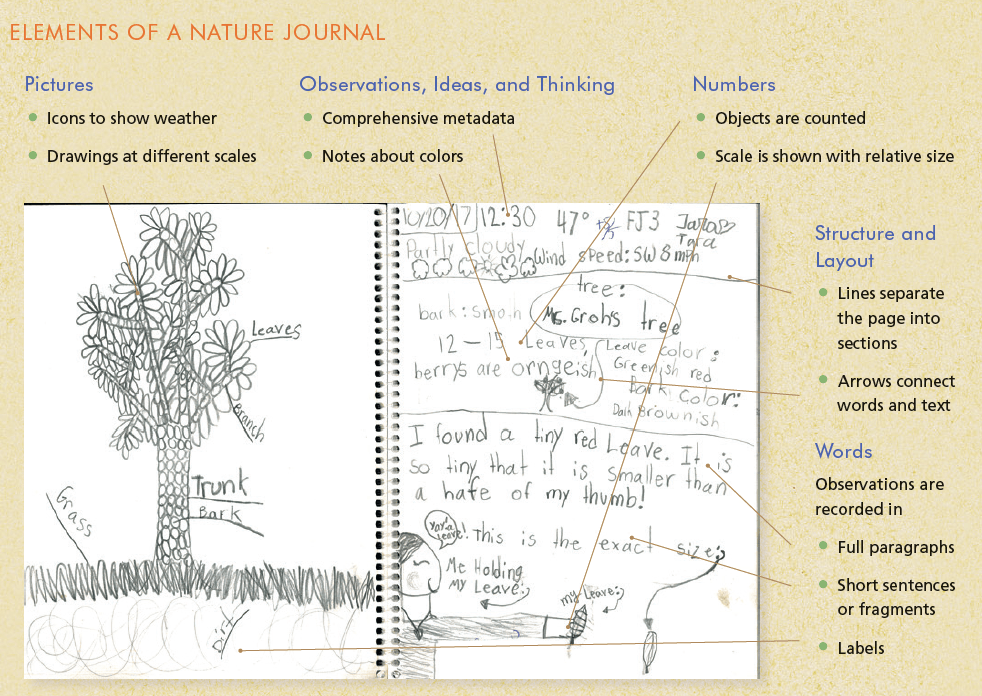 ELEMENTS OF A NATURE JOURNAL
Pictures
Icons to show weather
Drawings at different scales
Observations, Ideas, and Thinking
Comprehensive metadata
Notes about colors
Numbers
Objects are counted
Scale is shown with relative size
Structure and
Layout
Lines separate
the page into
sections
Arrows connect
words and text
Words
Observations are
recorded in
Full paragraphs
Short sentences
or fragments
Labels
Leaves
Branch
Trunk
Bark
Grass
Dirt
10/20/17 12:30 47° FJ3 Jara
Tara
Partly cloudy
Wind speed: SW 8 mph
tree:
Ms. Groh's tree
bark: smoth
12-15 Leaves,
berrys are orngeish
Leave color:
Greenish red
Bark Color:
Dark Brownish
I found a tiny red Leave. It is
so tiny that it is smaller than
a hafe of my thumb!
Yay! a
Leave!
This is the exact size:
Me Holding
My Leave:
my Leave: